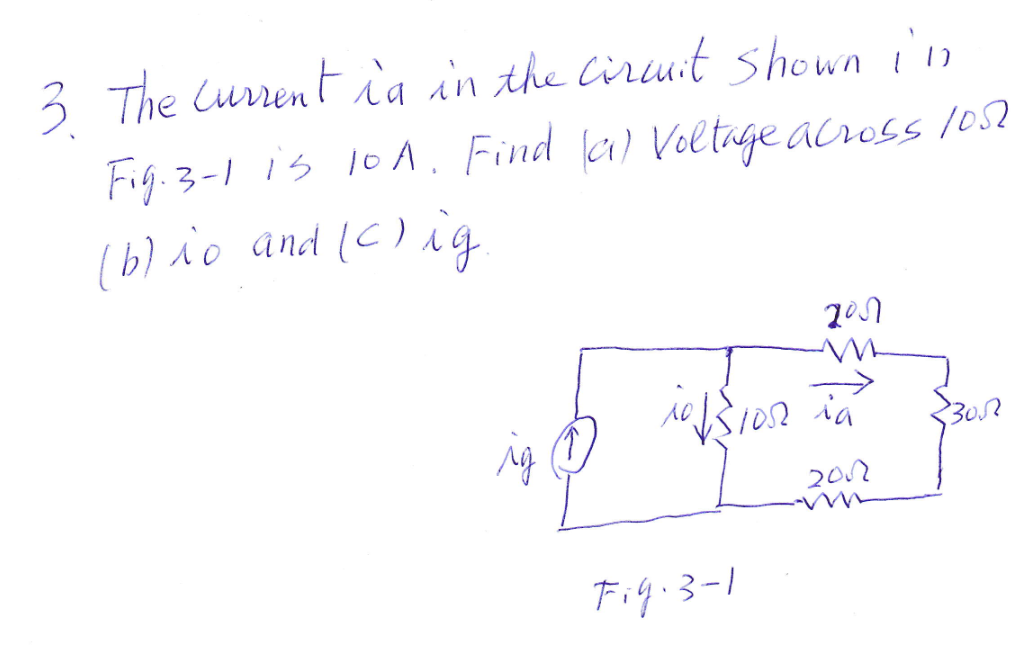 3. The current ia in the circuit shown in
Fig. 3-1 is 10 A. Find (a) Voltage across 10Ω
(b) io and (c) ig.
20Ω
io 10Ω ia 30Ω
ig
20Ω
Fig. 3-1